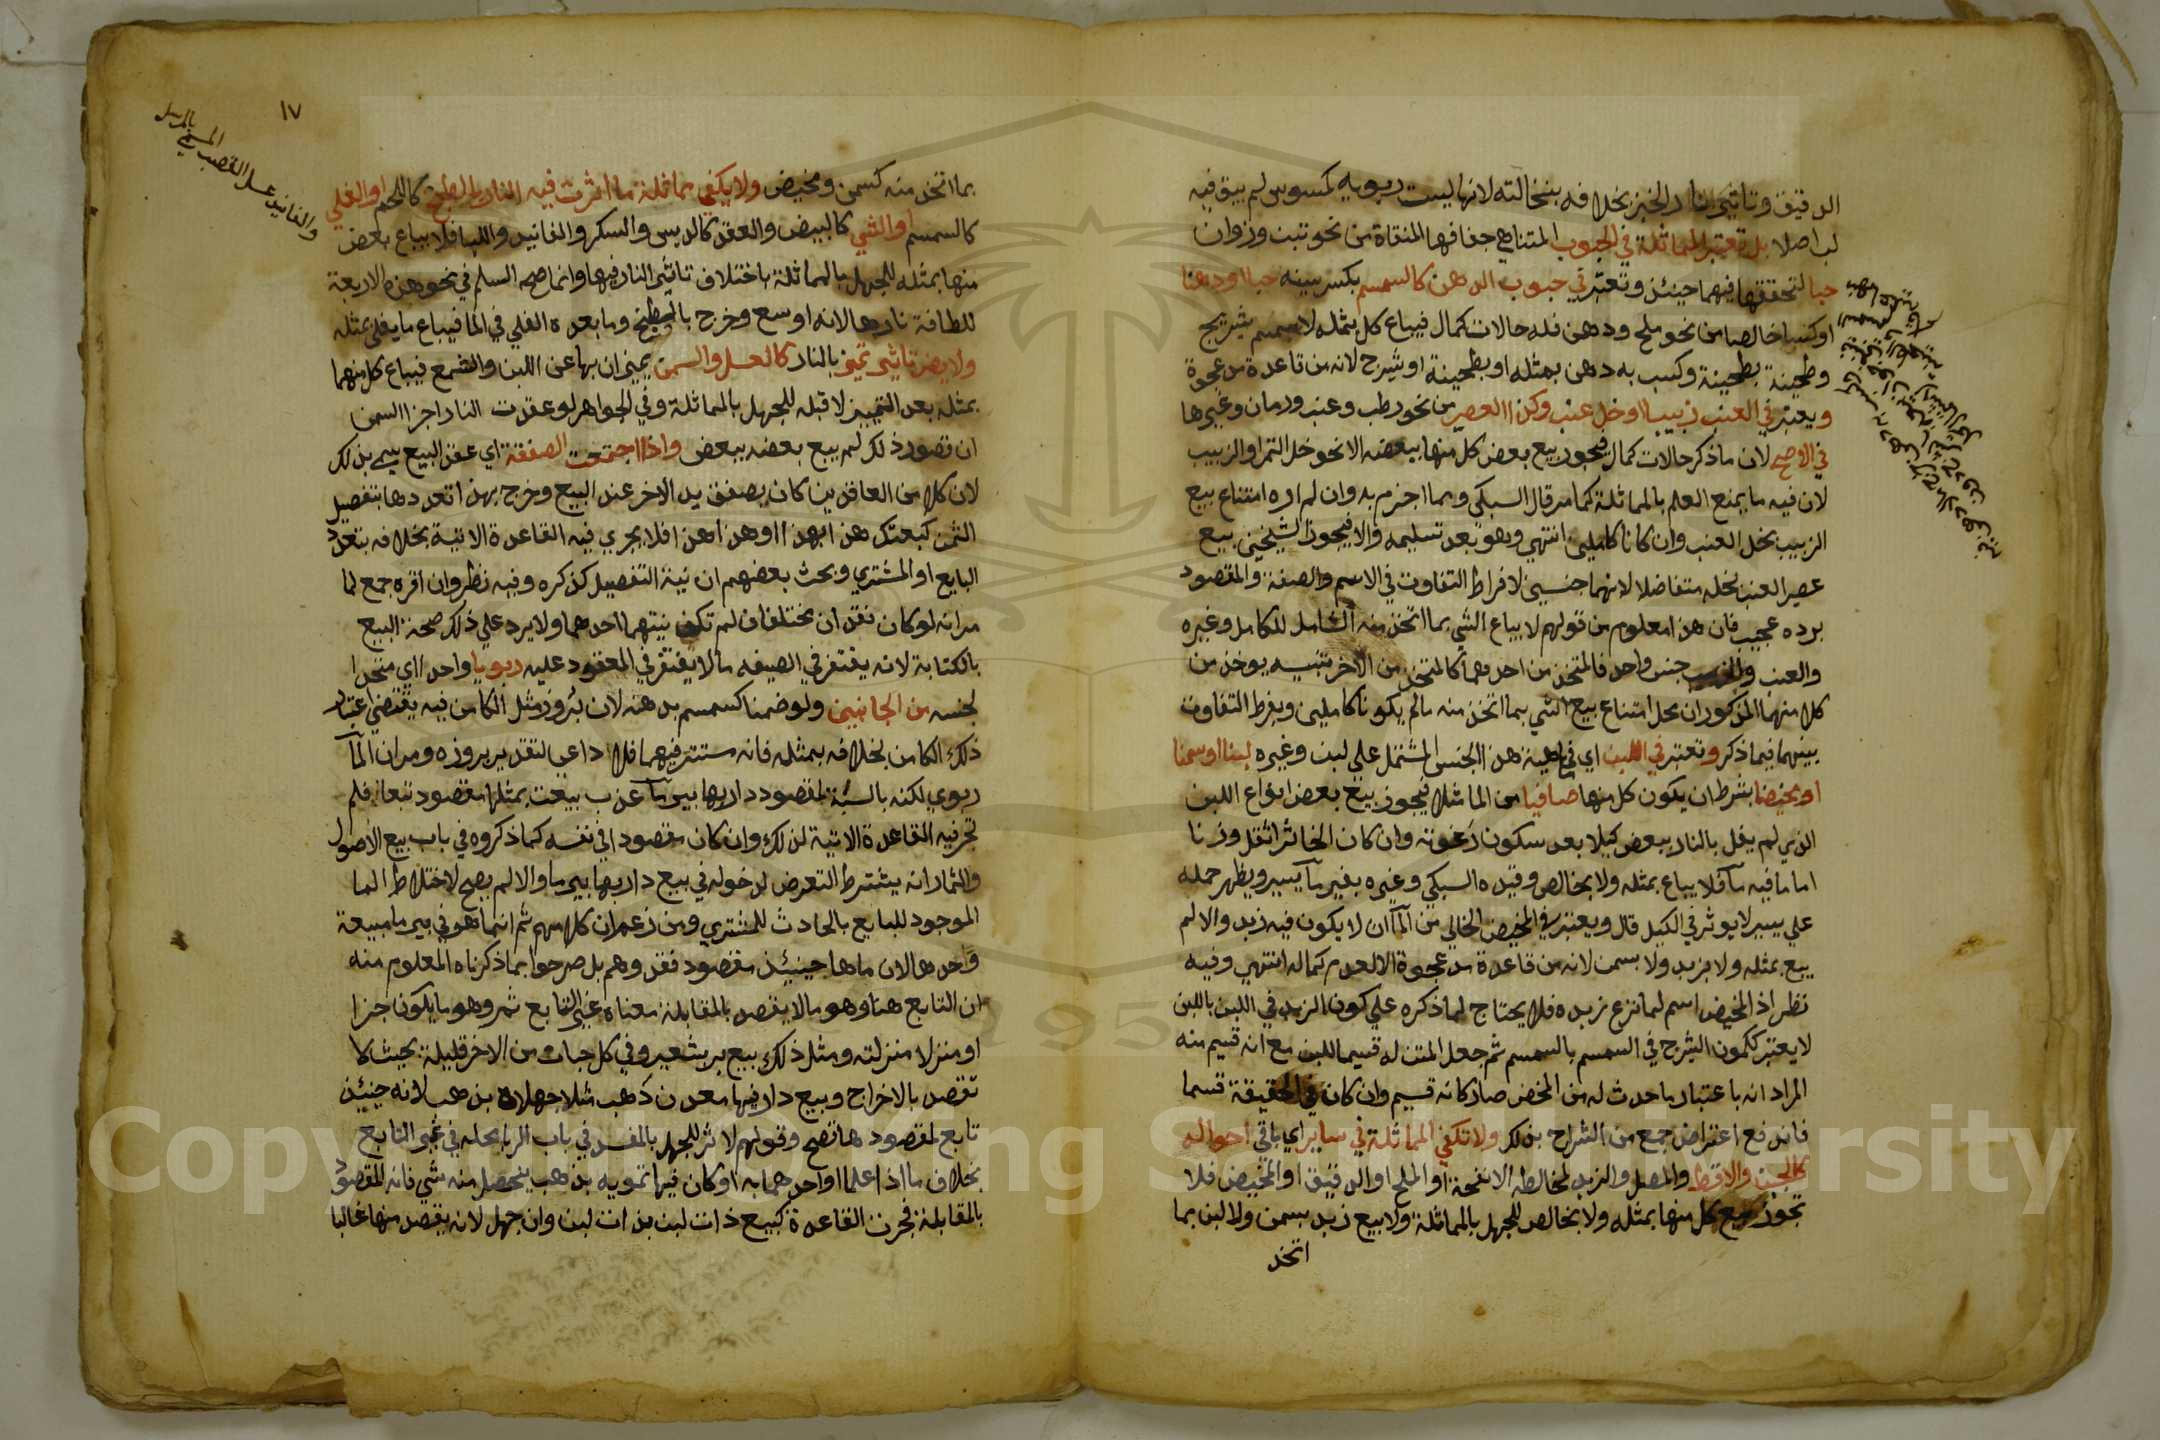 الدقيق وتاثير نار الخبز بخلافه بنخالته لانها ليست ربويه كمسوس لم يبق فيه
لب اصلا بل تعتبر المماثلة في الحبوب المتناهي جفافها المنقاة من نحو تبن وزوان
حبا لتحققها فيهما حينئذ وتعتبر في حبوب الدهن كالسمسم بكسر سينه حبا او دهنا
او كسبا خالصا من نحو ملح ودهن فله حالات كمال فيباع كل بمثله لا سمسم بشيرج
وطحينة بطحينة وكسب به دهن بمثله او بطحينة او شيرج لانه من قاعدة مد عجوة
ويعتبر في العنب زبيبا او خل عنب وكذا العصير من نحو رطب وعنب ورمان وغيرها
في الاصح لان ما ذكر حالات كمال فيجوز بيع بعض كل منها ببعضه الا نحو خل التمر او الزبيب
لان فيه ما يمنع العلم بالمماثلة كما مر قال السبكي ومما اجزم به وان لم اره امتناع بيع
الزبيب بخل العنب وان كانا كاملين انتهي وهو بعد تسليمه والا فيجوز الشيخين بيع
عصير العنب بخله متفاضلا لانهما جنسين لافراط التفاوت في الاسم والصفة والمقصود
يرده عجيب فان هذا معلوم من قولهم لا يباع الشي بما اتخذ منه الشامل للكامل وغيره
والعنب والزبيب جنس واحد فالمتخذ من احدهما كالمتخذ من الاخر تنبيه يوخذ من
كلامهما المذكور ان محل امتناع بيع الشي بما اتخذ منه ما لم يكونا كاملين ويفرط التفاوت
بينهما فيما ذكر وتعتبر في اللبن اي في ماهية هذا الجنس المشتمل على لبن وغيره لبنا او سمنا
او مخيضا بشرط ان يكون كل منها صافيا من الماء مثلا فيجوز بيع بعض انواع اللبن
الذي لم يغل بالنار ببعض كيلا بعد سكون رغوته وان كان الخاثر اثقل وزنا
اما ما فيه مآ فلا يباع بمثله ولا بخالص وقيده السبكي وغيره بغير مآ يسير ويظهر حمله
علي يسير لا يوثر في الكيل قال ويعتبر في المخيض الخالي من المآ ان لا يكون فيه زبد والا لم
يبع بمثله ولا بزبد ولا بسمن لانه من قاعدة مد عجوة الا لعدم كماله انتهي وفيه
نظر اذ المخيض اسم لما نزع زبده فلا يحتاج لما ذكره علي كون الزبد في اللبن باللبن
لا يعتبر ككمون الشيرج في السمسم بالسمسم ثم جعل المتن له قسيما للبن مع انه قسيم منه
المراد انه باعتبار ما حدث له من المخض صار كانه قسيم وان كان في الحقيقة قسما
فاندفع اعتراض جمع من الشراح بذلك ولا تكفي المماثلة في ساير اي باقي احواله
كالجبن والاقط والمصل والزبد لمخالطة الانفحة او الملح او الدقيق او المخيض فلا
تجوز بيع كل منها بمثله ولا بخالص للجهل بالمماثلة ولا بيع زبد بسمن ولا لبن بما
اتخذ
١٧
والفانيد عسل القصب
بما اتخذ منه كسمن ومخيض ولا يكفي مماثلة ما اثرت فيه النار بالطبخ كاللحم او القلي
كالسمسم او الشي كالبيض والعقد كالدبس والسكر والفانيد واللبا فلا يباع بعض
منها بمثله للجهل بالمماثلة باختلاف تاثير النار فيها وانما صح السلم في نحو هذه الاربعة
للطافة نارها لانه اوسع وخرج بالطبخ وما بعده الغلي في الما فيباع ما يغلي بمثله
ولا يضر تاثير تمييز بالنار كالعسل والسمن يميزان بها عن اللبن والشمع فيباع كل منهما
بمثله بعد التمييز لا قبله للجهل بالمماثلة وفي الجواهر لو عقدت النار اجزا السمن
ان تصور ذلك لم يبع بعضه ببعض واذا اجتمعت الصفقة اي عقد البيع سمي بذلك
لان كلا من العاقدين كان يصفق يد الاخر عند البيع وخرج بهذا تعددها بتفصيل
الثمن كبعتك هذا بهذا او هذا بهذا فلا يجري فيه القاعدة الاتية بخلافه بتعدد
البايع او المشتري وبحث بعضهم ان نية التفصيل كذكره وفيه نظر وان اقره جمع لما
مر انه لو كان نقدان مختلفان لم تكف نيتهما احدهما ولا يرد علي ذلك صحة البيع
بالكتابة لانه يغتفر في الصيغه ما لا يغتفر في المعقود عليه ربويا واحدا اي متحدا
لجنسه من الجانبين ولو ضمنا كسمسم بدهنه لان بروز مثل الكامن فيه يقتضي اعتبار
ذلك الكامن بخلافه بمثله فانه مستتر فيهما فلا داعي لتقدير بروزه ومر ان المآ
ربوي لكنه بالنسبة لمقصود دار بها بير مآ عذب بيعت بمثلها مقصود تبعا فلم
تجر فيه القاعدة الاتية لذلك وان كان مقصودا في نفسه كما ذكروه في باب بيع الاصول
والثمار انه يشترط التعرض لدخوله في بيع دار بها بير ما والا لم يصح لاختلاط الما
الموجود للبايع بالحادث للمشتري ومن زعم ان كلامهم ثم انما هو في بير ما مبيعة
وحدها لان ماها حينئذ مقصود فقد وهم بل صرحوا بما ذكرناه المعلوم منه
ان التابع هنا وهو ما لا يقصد بالمقابلة معناه غير التابع ثم وهو ما يكون جزا
او منزلا منزلته ومثل ذلك بيع بر بشعير وفي كل حبات من الاخر قليلة بحيث لا
تقصد بالاخراج وبيع دار فيها معدن ذهب مثلا جهلاه بذهب لانه حينئذ
تابع لمقصودها تصح وقولهم لا اثر للجهل بالمفسد في باب الربا محله في غير التابع
بخلاف ما اذا علما او احدهما به او كان فيها تمويه بذهب يتحصل منه شي فانه المقصود
بالمقابلة فجرت القاعدة كبيع ذات لبن بذات لبن وان جهل لانه يقصد منها غالبا